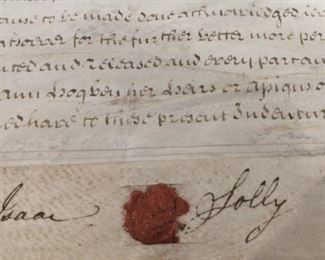 ause to be made done acknowledged
atsoever for the further better more per
nted and Released and every part
her Heirs or Assigns
have to these present Indentur
Isaac Solly